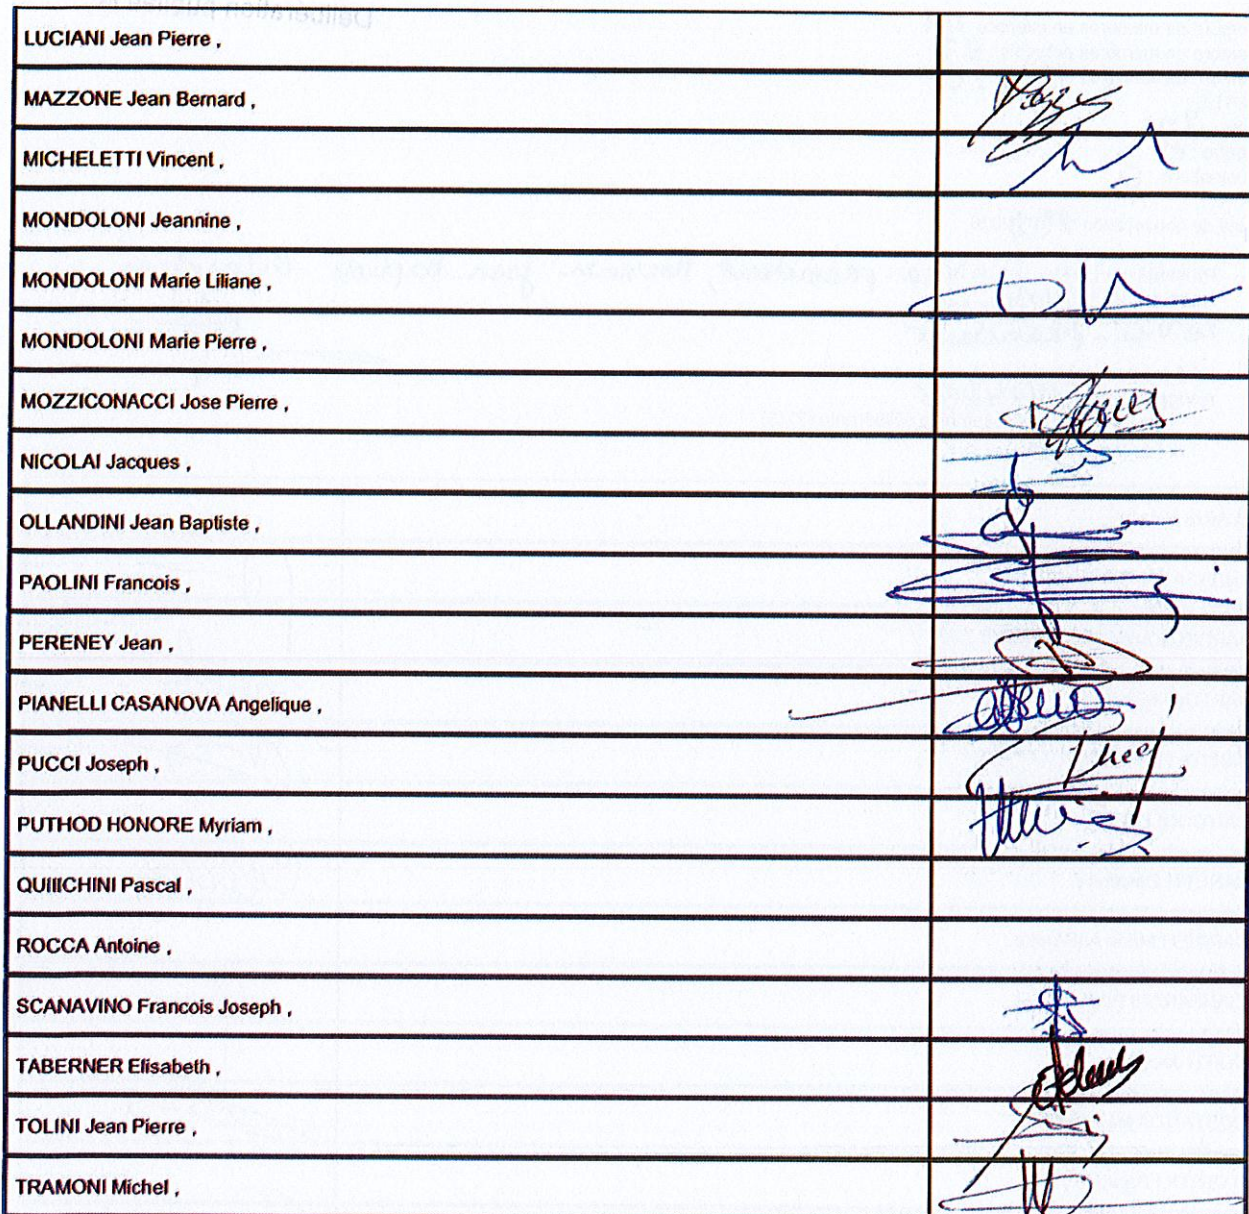 LUCIANI Jean Pierre ,
MAZZONE Jean Bernard ,
MICHELETTI Vincent ,
MONDOLONI Jeannine ,
MONDOLONI Marie Liliane ,
MONDOLONI Marie Pierre ,
MOZZICONACCI Jose Pierre ,
NICOLAI Jacques ,
OLLANDINI Jean Baptiste ,
PAOLINI Francois ,
PERENEY Jean ,
PIANELLI CASANOVA Angelique ,
PUCCI Joseph ,
PUTHOD HONORE Myriam ,
QUIIICHINI Pascal ,
ROCCA Antoine ,
SCANAVINO Francois Joseph ,
TABERNER Elisabeth ,
TOLINI Jean Pierre ,
TRAMONI Michel ,